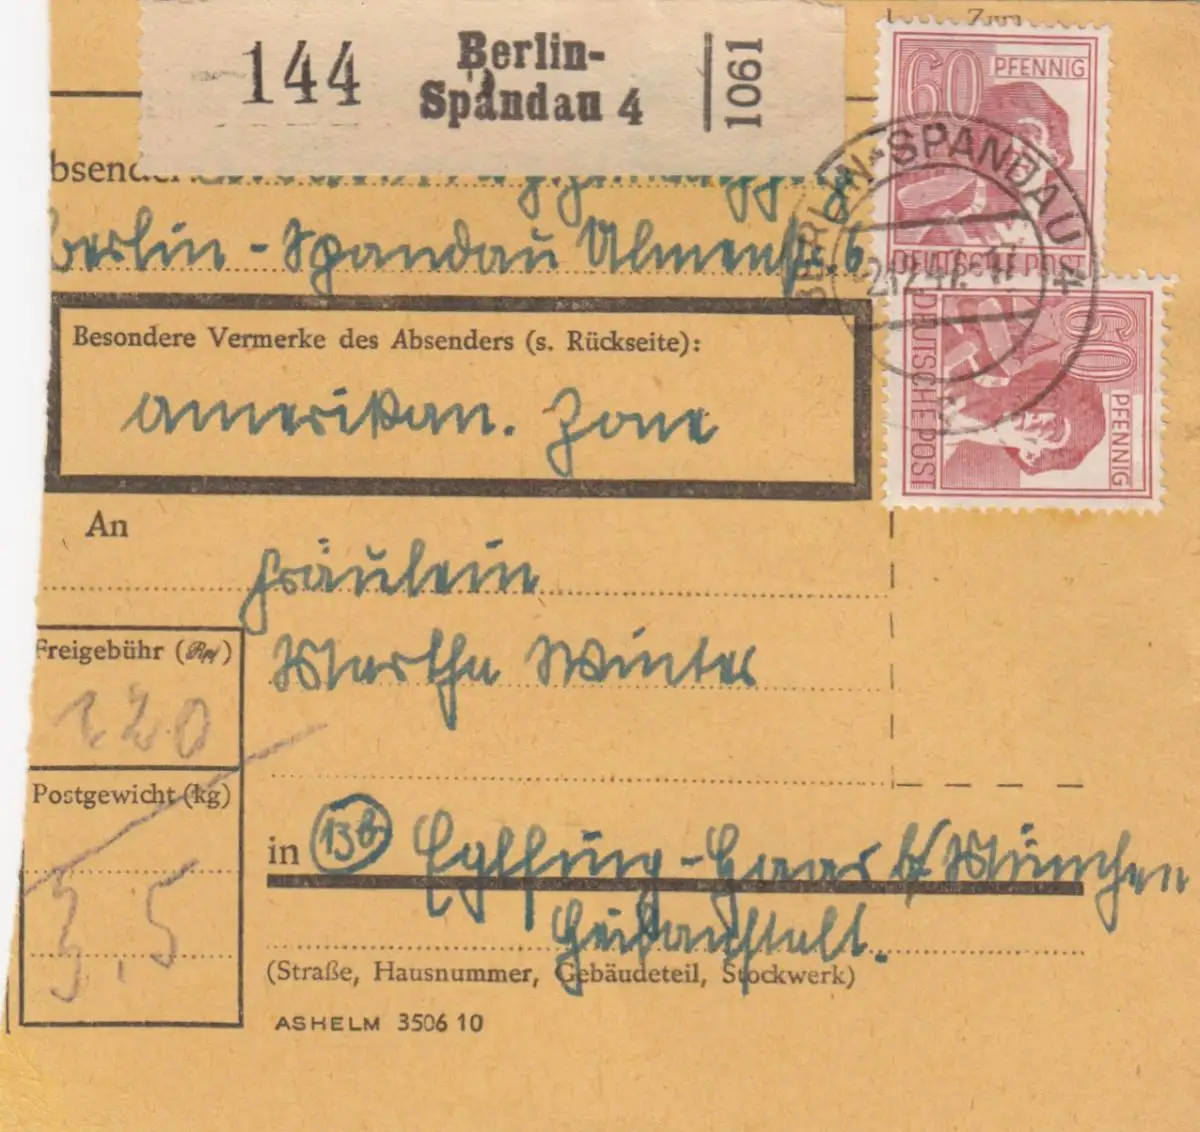 144 Berlin-
Spandau 4 1061
60 PFENNIG
DEUTSCHE POST
BERLIN-SPANDAU 4
60 PFENNIG
DEUTSCHE POST
bsende
Berlin - Spandau Ulmenstr. 6
Besondere Vermerke des Absenders (s. Rückseite):
amerikan. Zone
An
Fräulein
Martha Winter
Freigebühr (Rpf)
120
Postgewicht (kg)
3,5
in (13b) Eglfing-Haar b/ München
Heilanstalt.
(Straße, Hausnummer, Gebäudeteil, Stockwerk)
ASHELM 3506 10